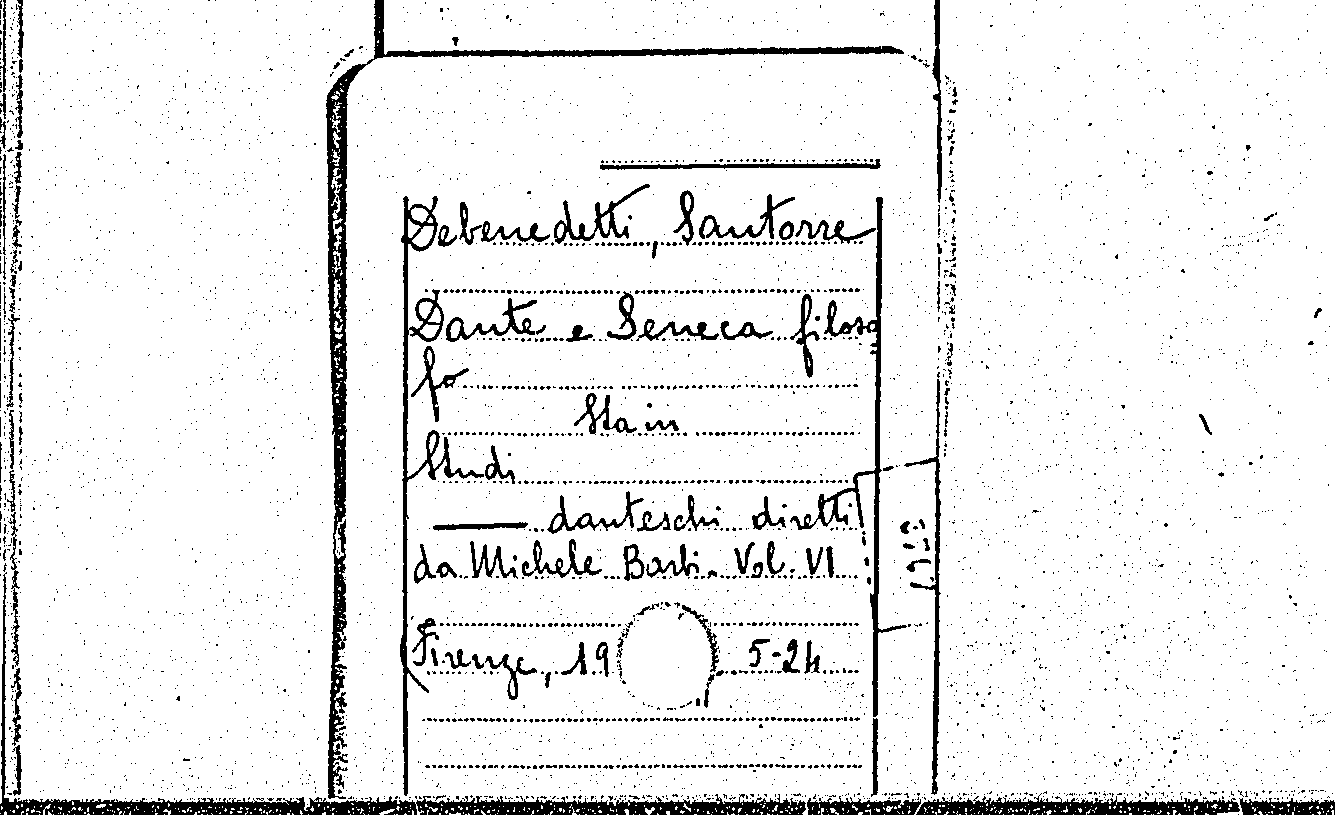 Debenedetti, Santorre
Dante e Seneca filoso=
fo
Sta in
Studi
danteschi diretti
da Michele Barbi. Vol. VI
Firenze, 19 5-24